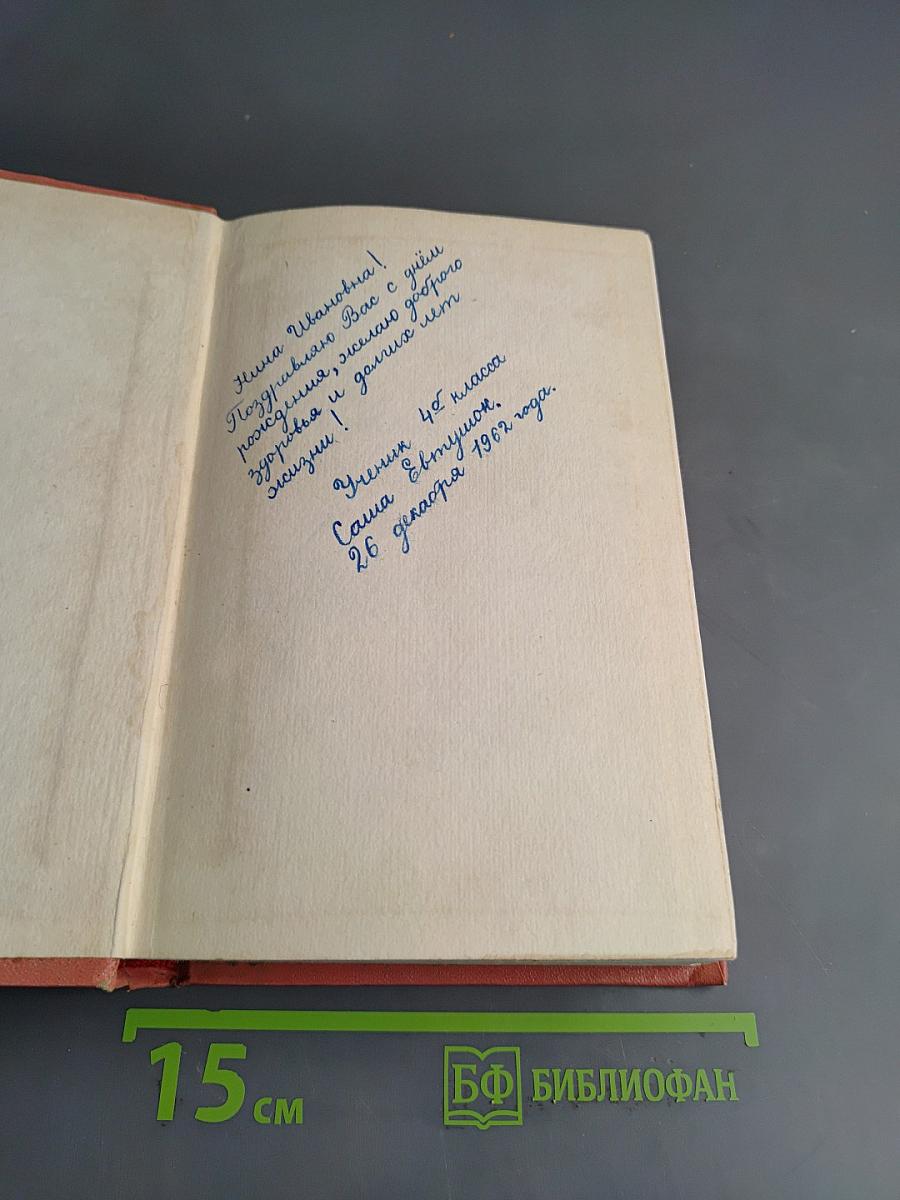 Нина Ивановна!
Поздравляю Вас с днём
рождения, желаю доброго
здоровья и долгих лет
жизни!
Ученик 4б класса
Саша Евтушок.
26 декабря 1962 года.
15 см
БФ БИБЛИОФАН